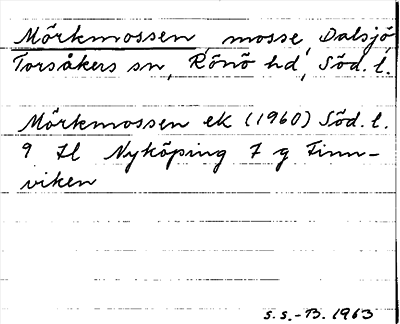 Mörkmossen, mosse, Dalsjö,
Torsåkers sn, Rönö hd, Söd. l.
Mörkmossen ek (1960) Söd. l.
9 H Nyköping 7 g Finn-
viken
S.S.-B. 1963